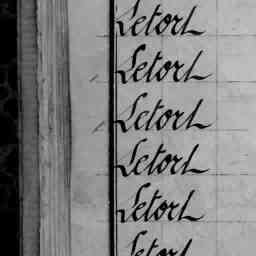 Letort
Letort
Letort
Letort
Letort
Letort